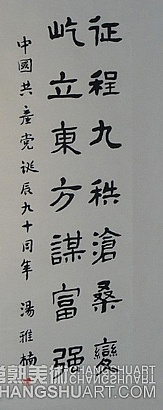 征程九秩滄桑變
屹立東方謀富强
中國共產党誕辰九十周年 湯雅楠
常熟美術 CHANGSHUART
CHANGSHUART.COM